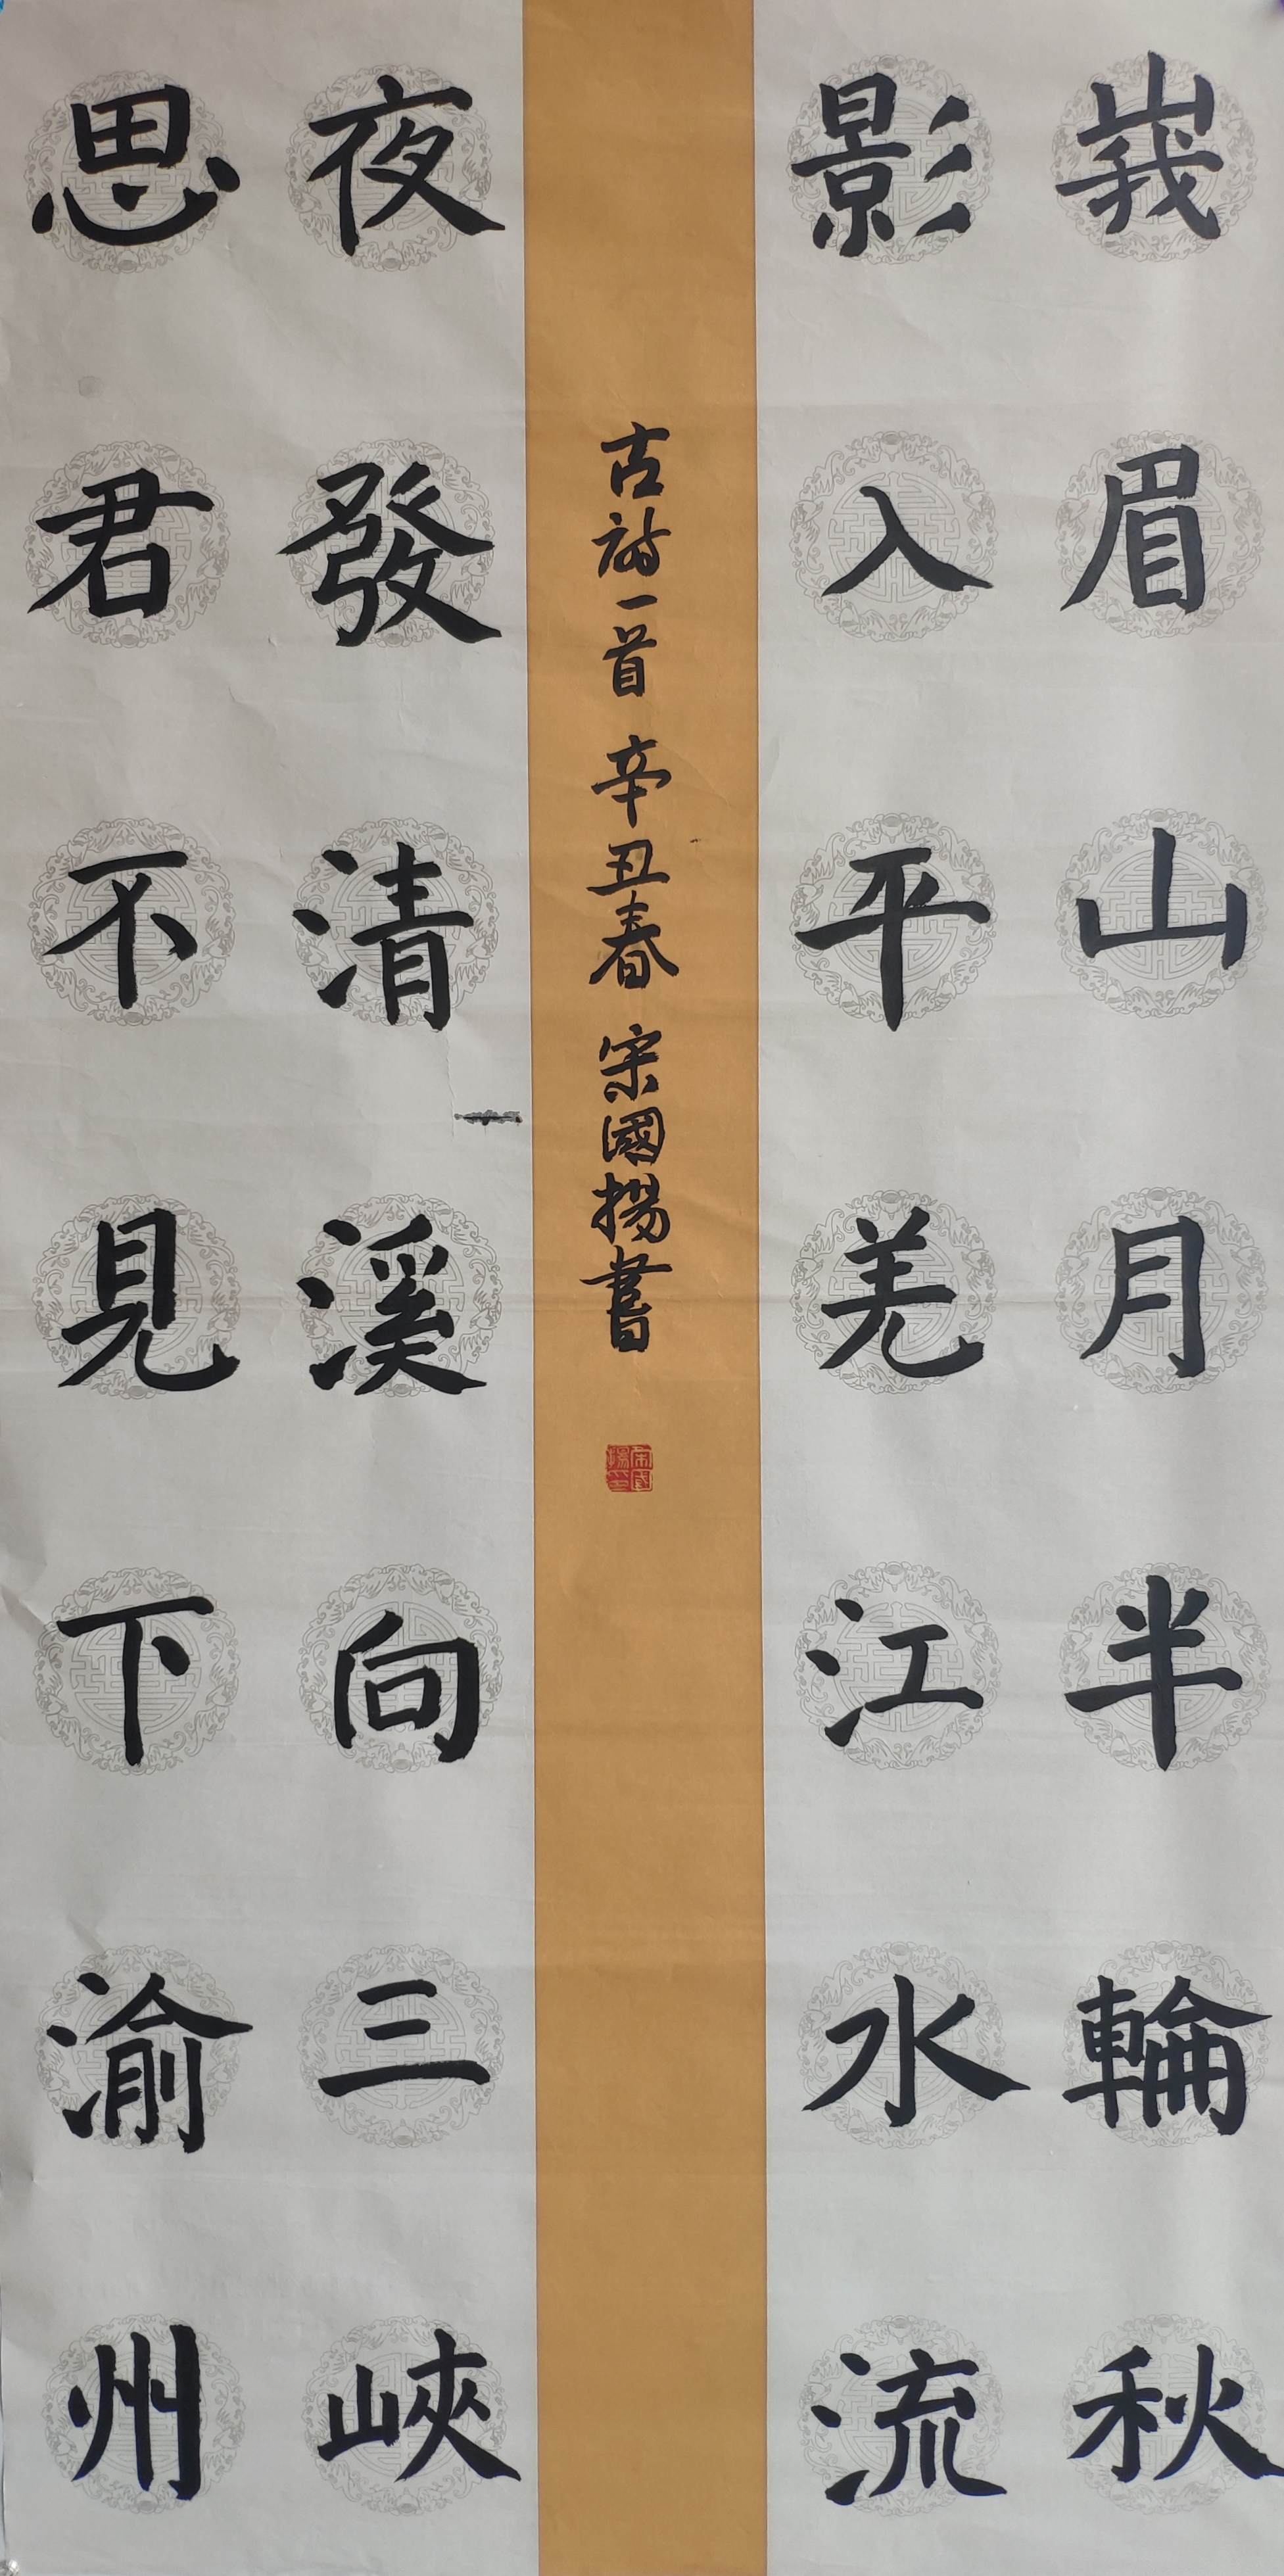 峩眉山月半輪秋
影入平羌江水流
夜發清溪向三峽
思君不見下渝州
古詩一首 辛丑春 宋國揚書
宋國揚印